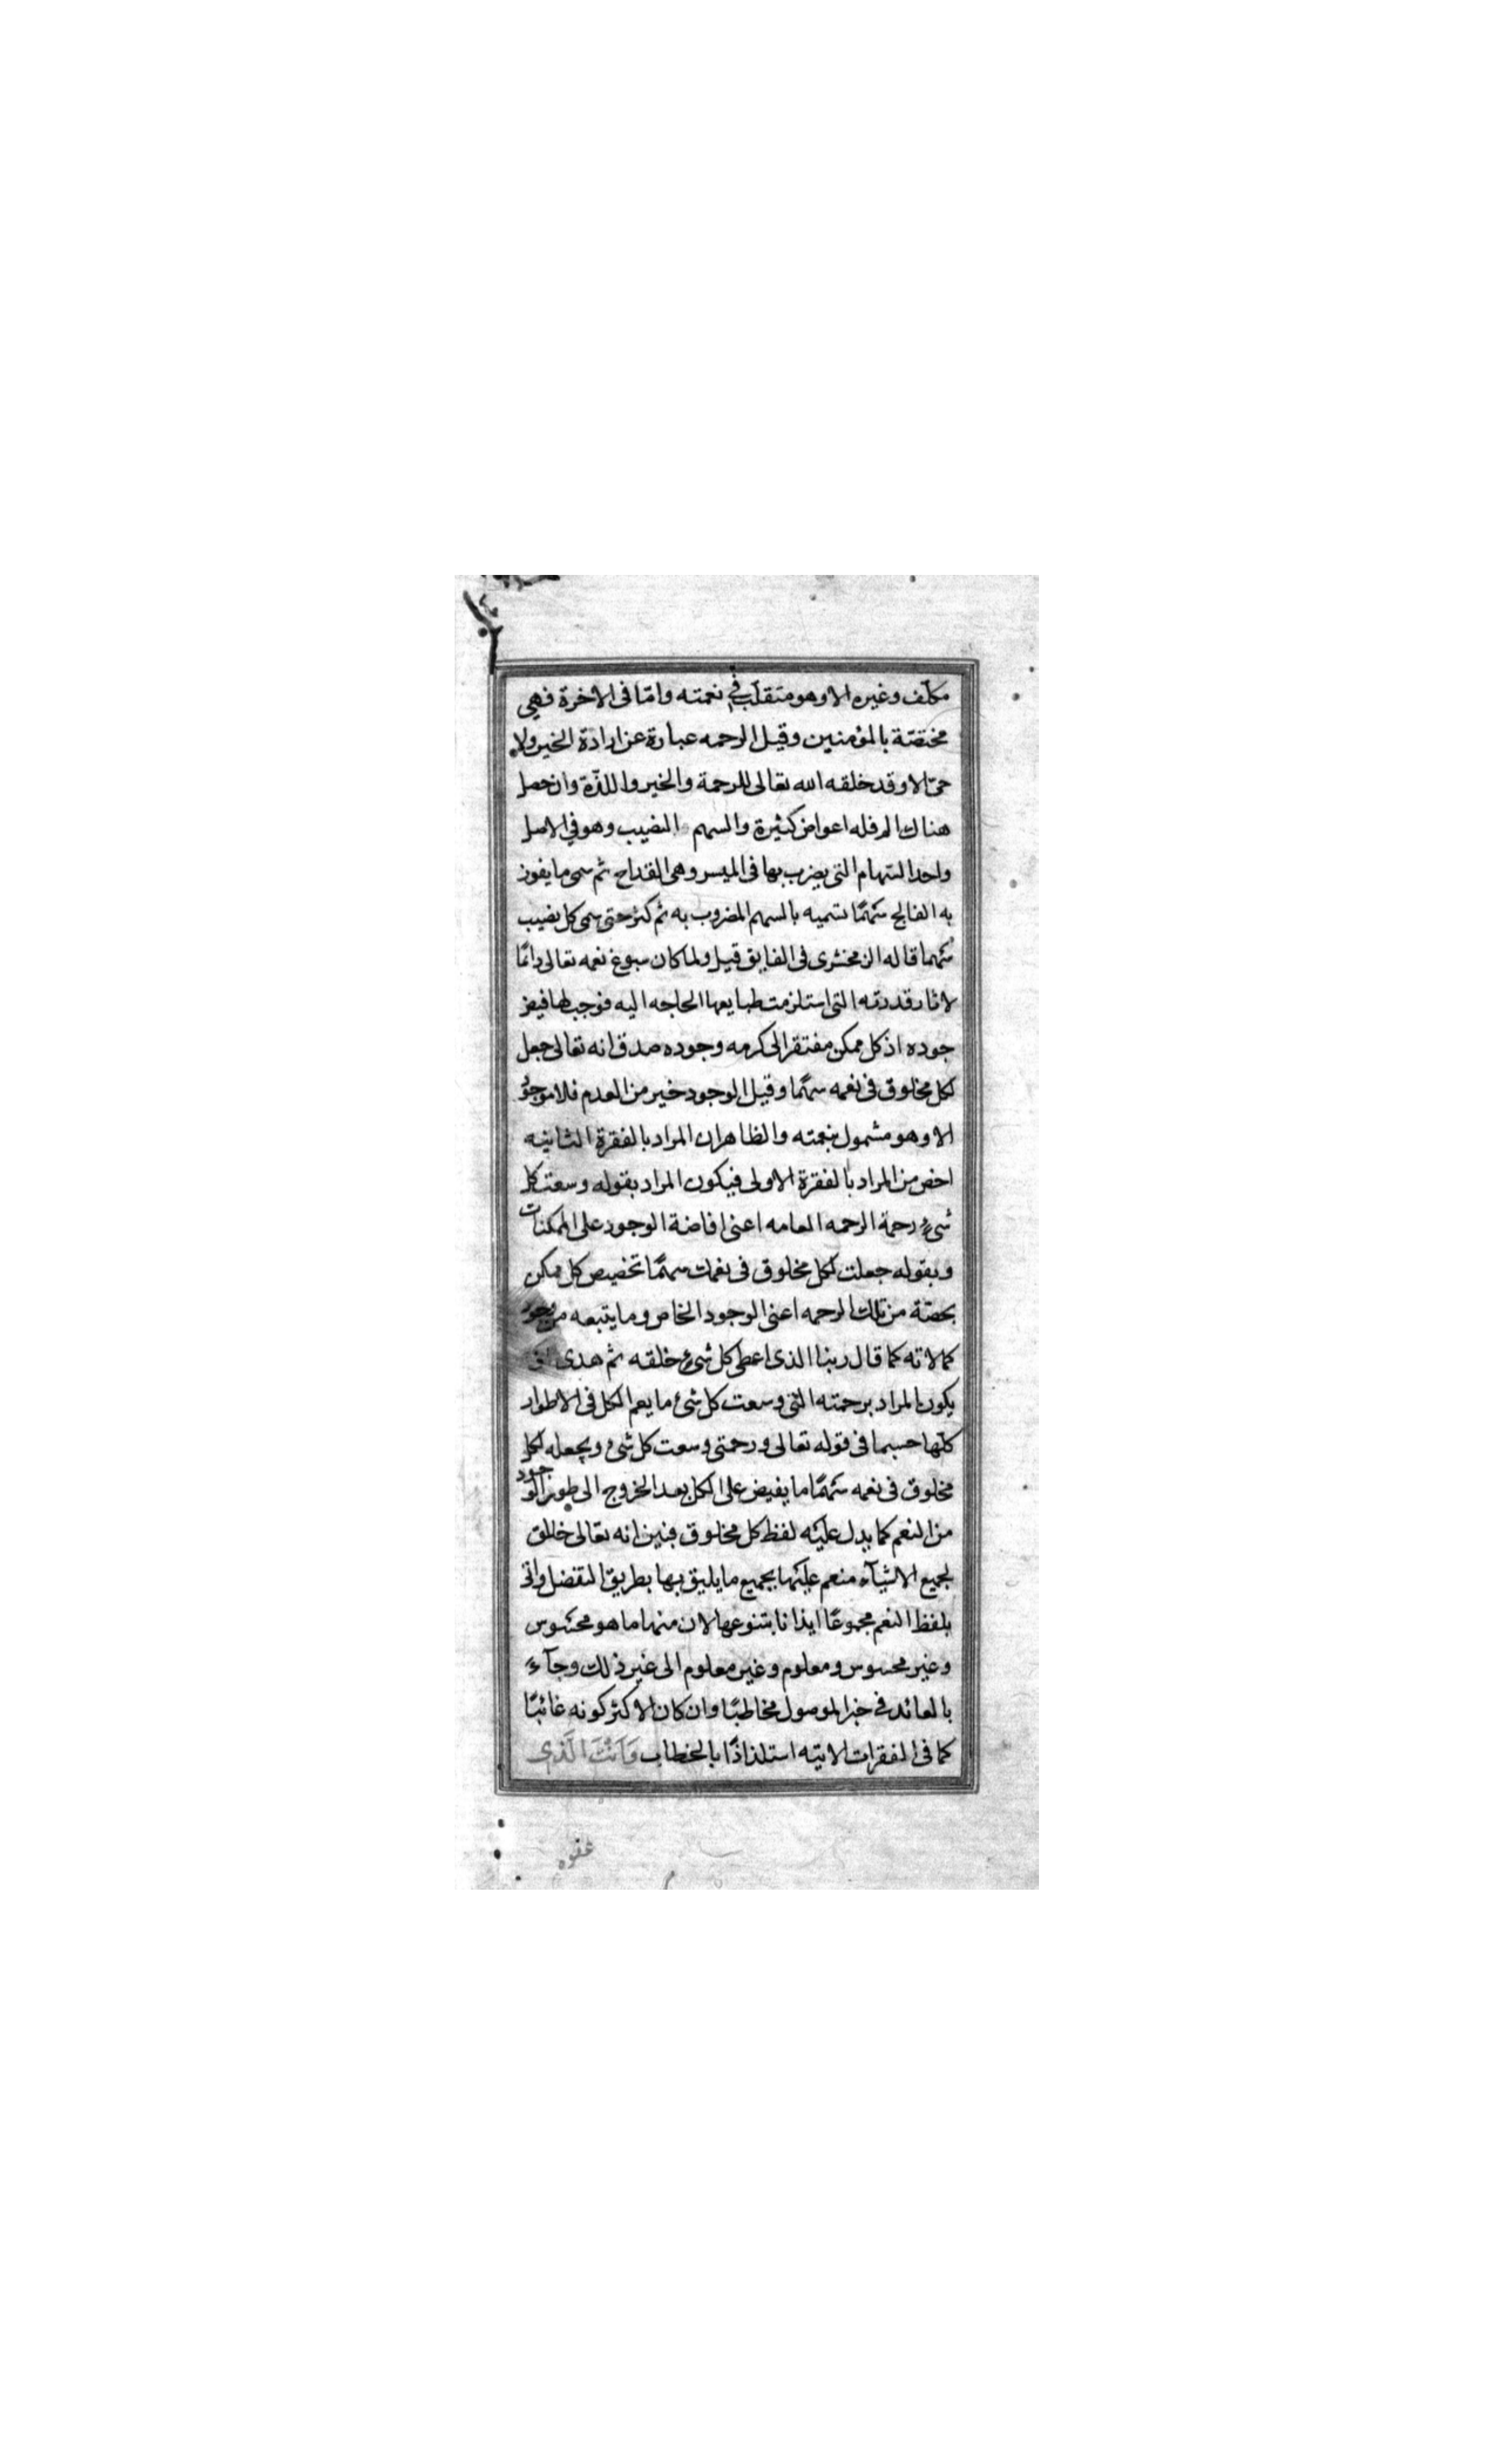 مكلف وغيره الا وهو متقلب في نعمته وامّا فى الاخرة فهي
مختصّة بالمؤمنين وقيل الرحمه عبارة عن ارادة الخير ولا
حىّ الا وقد خلقه الله تعالى للرحمة والخير واللذّة وان حصل
هناك الم فله اعواض كثيرة والسهم النصيب وهو في الاصل
واحد السّهام التى يضرب بها فى الميسر وهى القداح ثم سمى ما يفوز
به الفالج سَهمًا تسميه بالسهم المضروب به ثم كثر حتى سمى كل نصيب
سَهما قاله الزمخشرى فى الفايق قيل ولما كان سبوغ نعمه تعالى دائمًا
لاثار قدرته التى استلزمت طبايعها الحاجه اليه فوجب لها فيض
جوده اذ كل ممكن مفتقر الى كرمه وجوده صدق انه تعالى جعل
لكل مخلوق فى نعمه سهمًا وقيل الوجود خير من العدم فلا موجود
الا وهو مشمول بنعمته والظاهر ان المراد بالفقرة الثانيه
اخص من المراد بالفقرة الاولى فيكون المراد بقوله وسعت كل
شىءٍ رحمة الرحمه العامه اعنى افاضة الوجود على الممكنات
وبقوله جعلت لكل مخلوق فى نعمك سهمًا تخصيص كل ممكن
بحصّة من تلك الرحمه اعنى الوجود الخاص وما يتبعه من وجود
كمالاته كما قال ربنا الذى اعطى كل شىءٍ خلقه ثم هدى او
يكون المراد برحمته التى وسعت كل شىء ما يعم الكل فى الاطوار
كلّها حسبما فى قوله تعالى ورحمتى وسعت كل شىء وبجعله لكل
مخلوق فى نعمه سَهمًا ما يفيض على الكل بعد الخروج الى طور الوجود
من النعم كما يدل عليَه لفظ كل مخلوق فبين انه تعالى خالق
لجميع الاشيآء منعم عليَها بجميع ما يليق بها بطريق التفضل واتى
بلفظ النعم مجموعًا ايذانا بتنوعها لان منها ما هو محسَوس
وغير محسوس ومعلوم وغير معلوم الى غير ذلك وجآءَ
بالعائد في خبر الموصول مخاطبًا وان كان الاكثر كونه غائبًا
كما فى الفقرات الاتيه استلذاذًا بالخطاب وَاَنْتَ الَّذى
عفوه